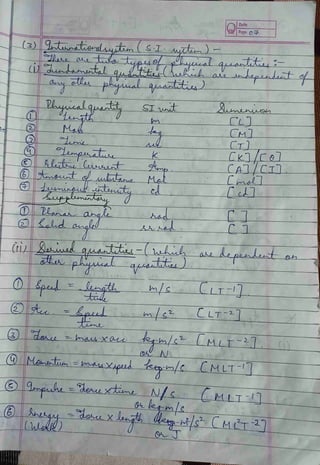 Date
Page 02
(2) International system (S I system) -
There are two types of physical quantities :-
(i) Fundamental quantities (which are independent of
any other physical quantities)
Physical quantity SI unit Dimension
① Length m [L]
② Mass kg [M]
③ Time sec [T]
④ Temperature K [K]/[θ]
⑤ Electric Current Amp [A]/[I]
⑥ Amount of substance Mol [mol]
⑦ Luminous intensity cd [cd]
Supplementary
① Planar angle rad [ ]
② Solid angle [ ]
(ii) Derived quantities - (which are dependent on
other physical quantities)
① Speed = length m/s [LT⁻¹]
time
② Acc = Speed m/s² [LT⁻²]
time
③ Force = mass x acc kgm/s² [MLT⁻²]
or N
④ Momentum = mass x speed kgm/s [MLT⁻¹]
⑤ Impulse = Force x time N/s [MLT⁻¹]
or kgm/s
⑥ Energy = Force x length kgm²/s² [ML²T⁻²]
(Work) or J